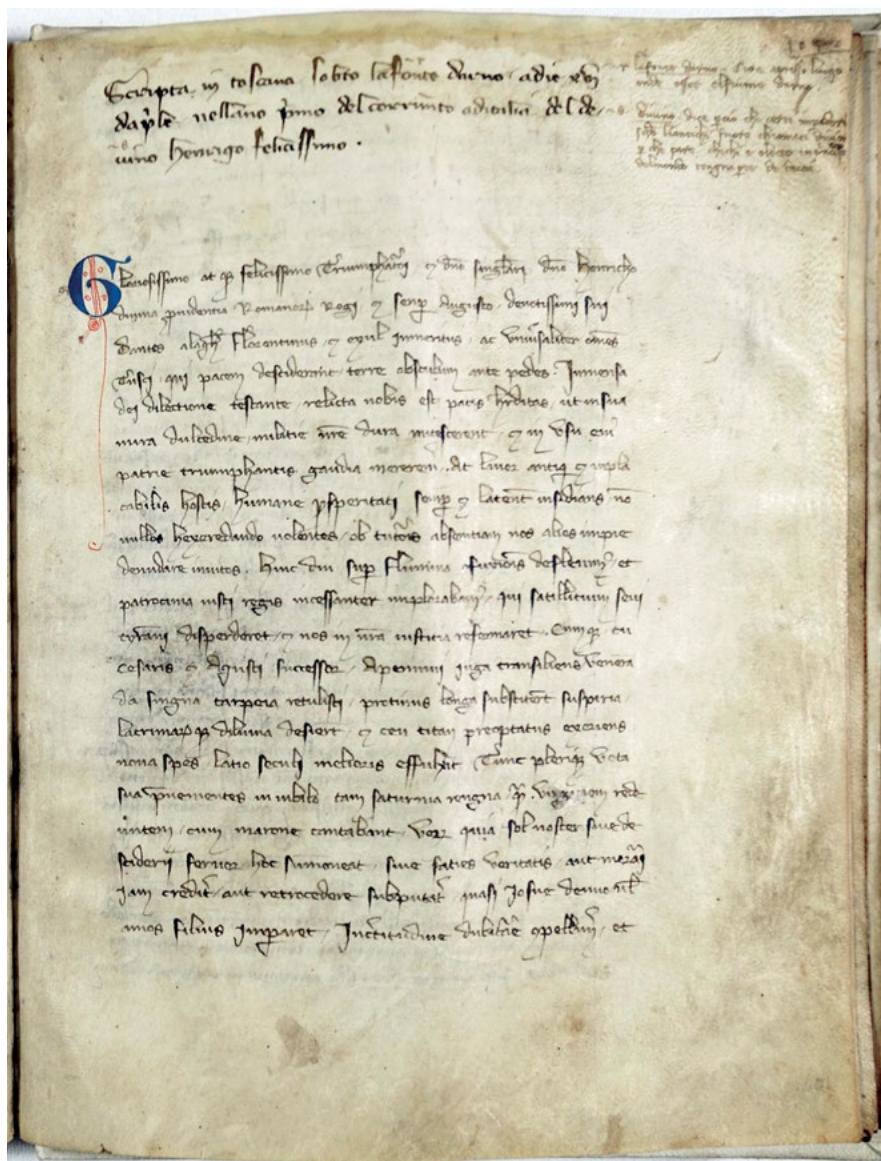 Scripta in toscana sobto la fonte d'arno adie xvi
d'aple nell anno p̃mo del corrimto aditalia del de
uino henrigo felicissimo.
Gloriosissimo atq; felicissimo Triumphatori ⁊ dño singlari dño Henricho
diuina prudentia Romanorꝝ Regi ⁊ semp Augusto deuotissimi sui
Dantes alagħ Florentinus ⁊ exul inmeritus ac vniuersaliter omẽs
Tusci qui pacem desciderant terre obsculum ante pedes. Inmensa
dei dilectione testante relicta nobis est pacis hẽditas ut in sua
mira dulcedine militie nrẽ dura mitescerent ⁊ in vsu eiu
patrie triumphantis gaudia mererem̃. At liuor antiq ⁊ inpla
cabilis hostis humane psperitati semp ⁊ latent̃ insidians nõ
nullos hexeredando uolentes ob tutoris absentiam nos alios impie
denudare inuitos. Hinc diu sup flumina fusionis defleuim̃ et
patrocinia iusti regis incessanter implorabam̃ qui satillitium seui
tyrãni disperderet ⁊ nos in nrã iustitia reformaret. Cumq; tu
cesaris ⁊ Agusti successor Apennini iuga transiliens venera
da singna tarpeia retulisti protinus longa substitert̃ suspiria
lacrimarꝝq; diluuia desiert̃ ⁊ ceu titan preoptatus exoriens
noua spes latio seculi melioris effulsit Tunc pleriq; vota
sua p̃uenientes in iubilo tam saturnia rengna q̃ virg̃ iem rede
untem cum marone cantabant. Verꝝ quia sol noster siue de
sciderij feruor hoc sumoneat siue faties veritatis aut morãi
iam credit̃ aut retrocedere subputat̃ quasi Iosue denuo ul̃
amos filius imparet Incertitudine dubitãre ꝯpellim̃ et